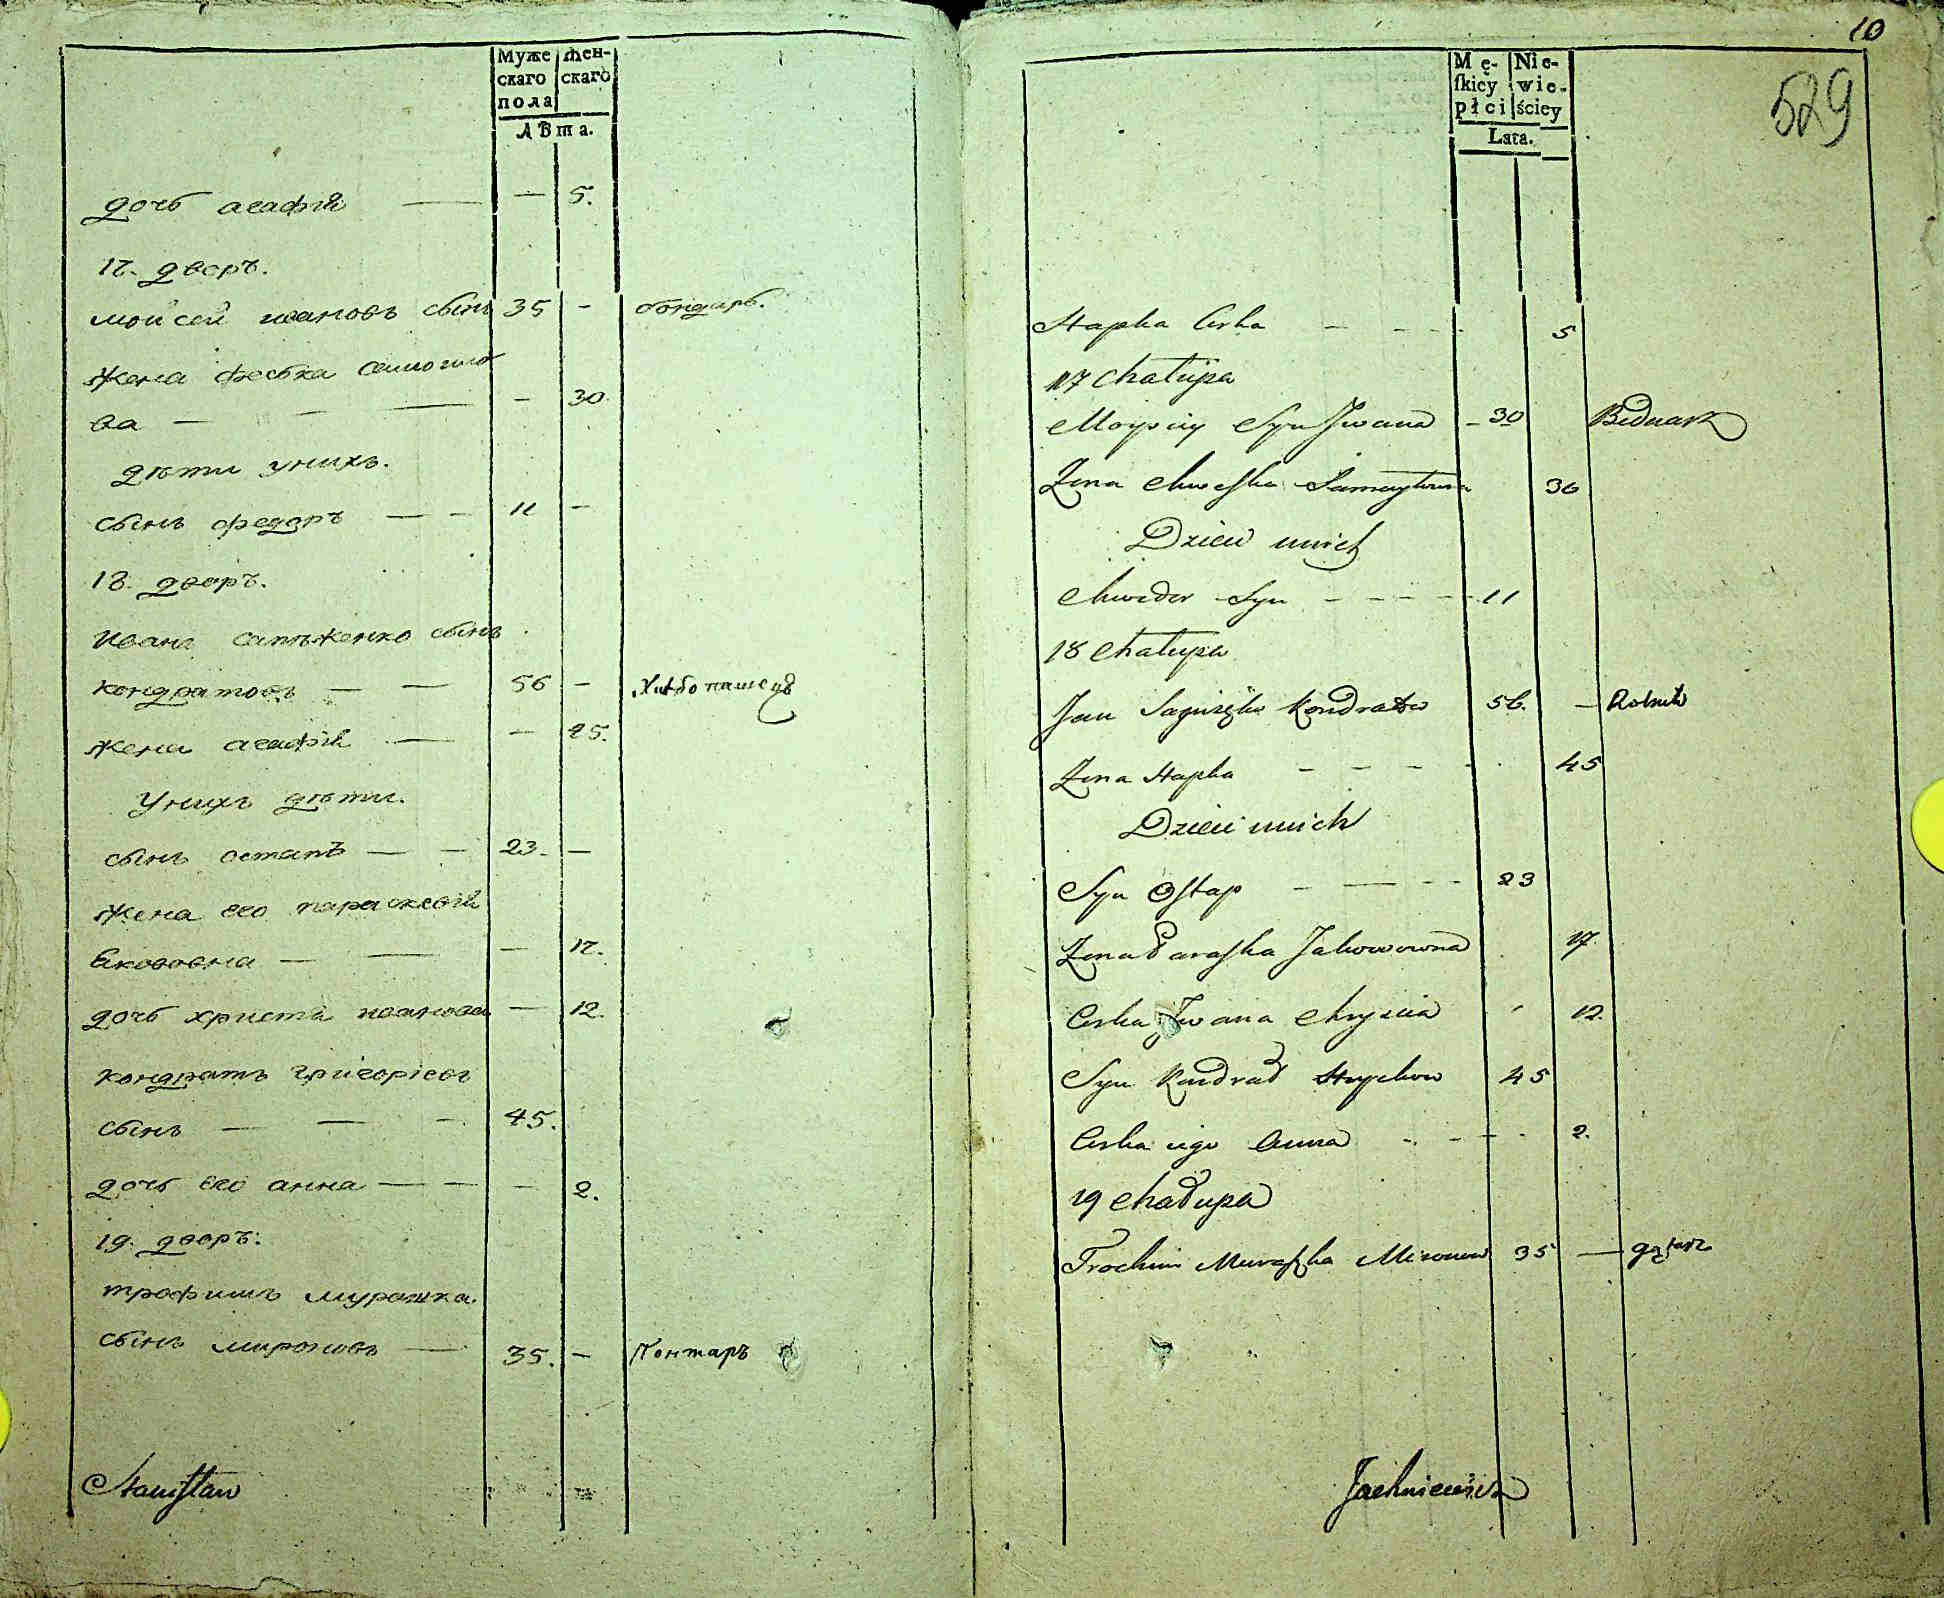 Муже Жен-
скаго скаго
пола
Лѣта.
дочь агафія — — 5.
17. дворъ.
мойсей ивановъ сынъ 35 - бондарь.
жена фескa самогило
ва — — — - 30
дѣти унихъ.
сынъ федоръ — — 11 -
18. дворъ.
Иванъ сапѣженко сынъ
кондратовъ — — 56 - Хлѣбопашецъ
жена агафія — — 45.
Унихъ дѣти.
сынъ остапъ — — 23. —
жена его параскевія
Якововна — — — 17.
дочь христя иванова — 12.
кондратъ григоріевъ
сынъ — — - 45.
дочь его анна — — - 2.
19. дворъ.
трофимъ мурашка
сынъ мироновъ — 35. - Гонтаръ
Stanisław
10
529
Mę- Nie-
skiey wie-
płci ściey
Lata.
Hapka Corka - - - - 5
17 Chałupa
Moysiey Syn Jwana - 30 Bednarz
Zona Chweska 30
Dzieci unich
Chwedor Syn - - - - 11
18 Chałupa
Jan Kondratow 56. — Rolnik
Zona Hapka - - - - 45
Dzieci unich
Syn Ostap - — - - 23
Zona Paraska Jakowowna 17
Corka Jwana Chryscia 12.
Syn Kondrad Hrychow 45
Corka iego Anna - - - - 2.
19 Chałupa
Trochim Muraszka Mironow 35 — gątarz
Jachniewicz